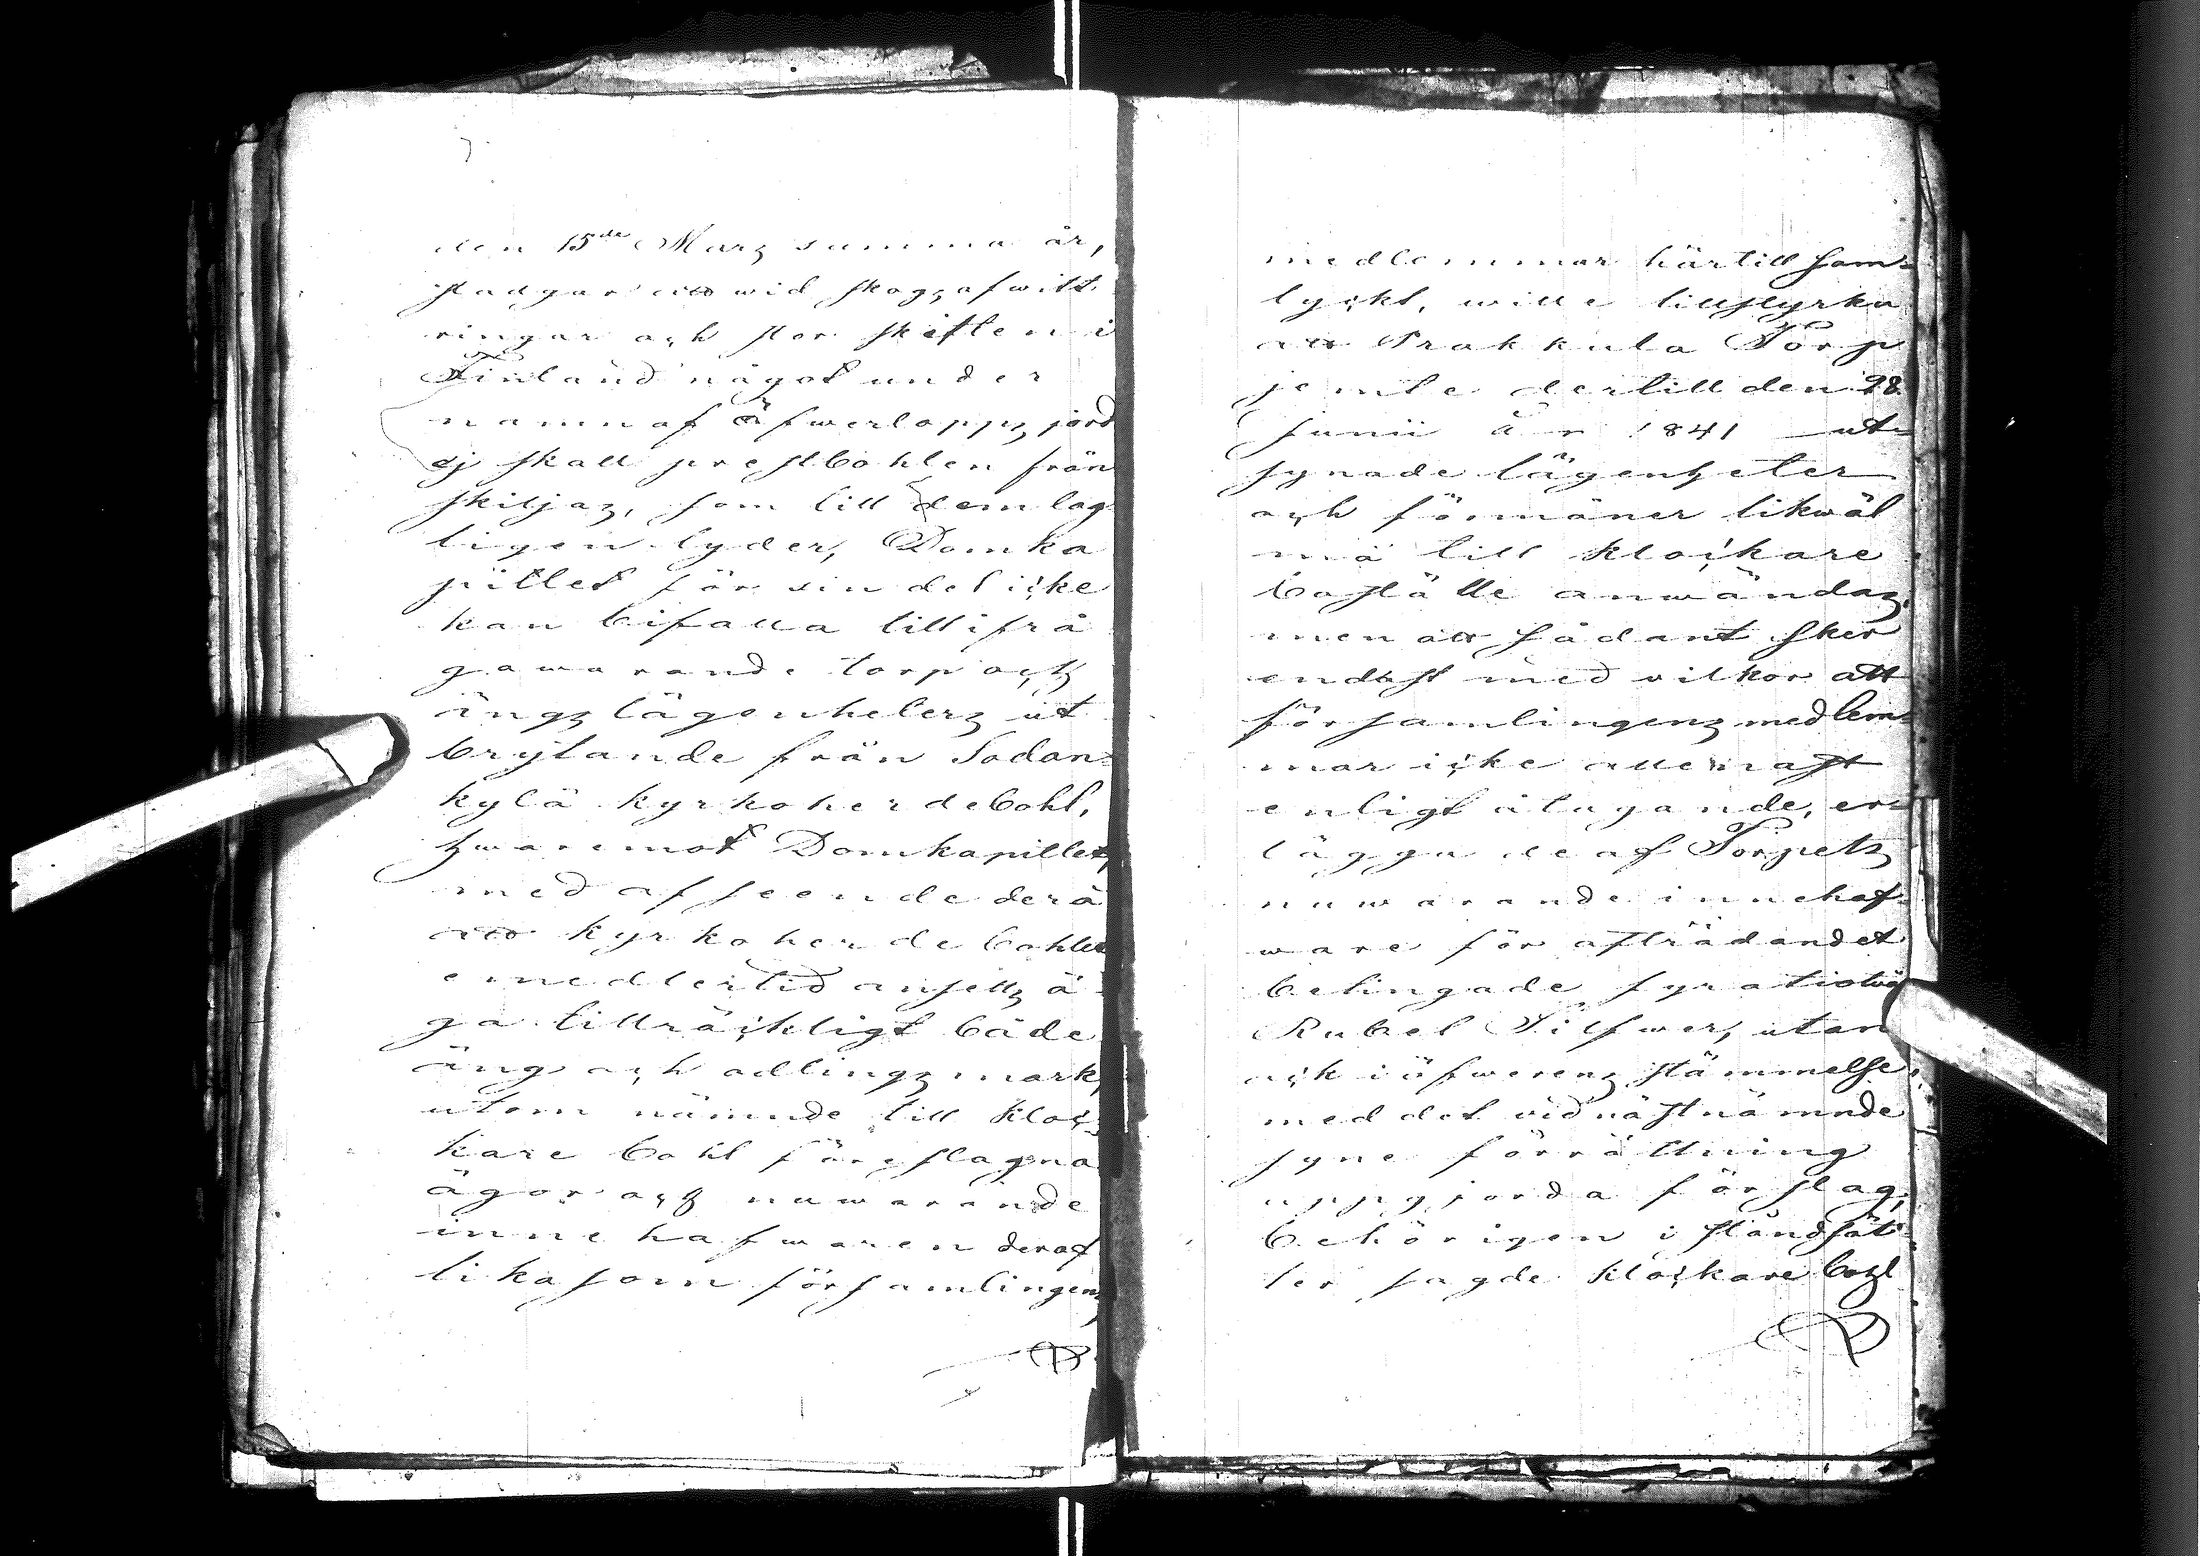 den 15de Mars samma år,
stadgar att wid skogsafwitt-
ringar och stor skiften i
Finland något under
namn af öfwerlopps jord
ej skall prestbohlen från
skiljas, som till dem lag-
ligen lyder, Domka
pitlet för sin del icke
kan bifalla till ifrå
gawarande torp och
ängslägenheters ut
brytande från Sodan-
kylä kyrkoherdebohl,
hwaremot Domkapitlet,
med afseende derå
att kyrkoherdebohlet
emedlertid ansetts ä-
ga tillräckligt både
äng och odlingsmark,
utom nämnde till Kloc-
kare bohl föreslagna
ägor och nuwarande
innehafwaren deraf
likasom församlingens
medlemmar härtill sam-
tyckt, wille tillstyrka
att Prakkula Torp
jemte dertill den 28
Junii år 1841 ut-
synade lägenheter
och förmåner likwäl
må till klockare
boställe användas,
men att sådant sker
endast med vilkor att
församlingens medlem-
mar icke allenast
enligt åtagande, er-
lägga de af Torpets
nuwarande innehaf-
ware för afträdandet
betingade fyratiotvå
Rubel Silfwer, utan
ock i öfwerensstämmelse
med det vid nästnämnde
syne förrättning
uppgjorda förslag,
behörigen i ståndsät-
ter sagde klockare bohl